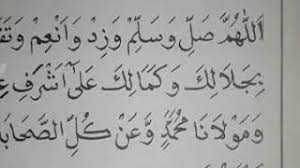 اَللّٰهُمَّ صَلِّ وَسَلِّمْ وَزِدْ وَاَنْعِمْ
بِجَلَالِكَ وَكَمَالِكَ عَلٰى اَشْرَفِ
وَمَوْلَانَا مُحَمَّدٍ وَّعَنْ كُلِّ الصَّحَابَةِ